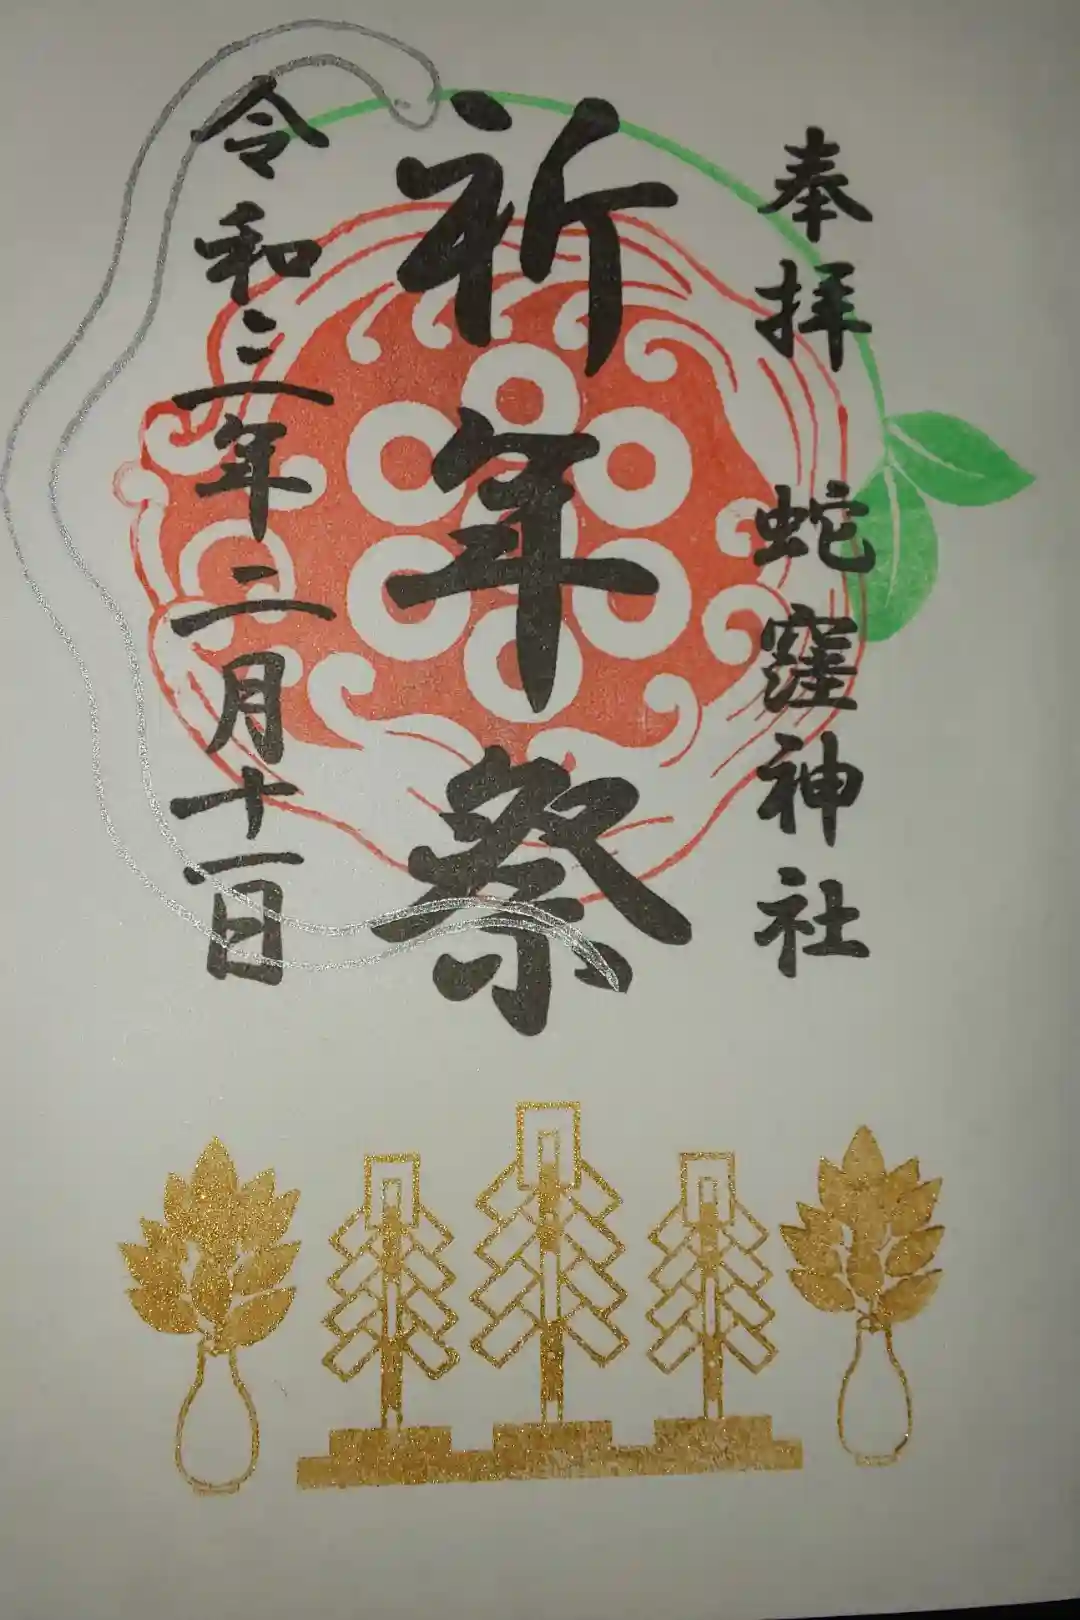 奉拝 蛇窪神社
祈年祭
令和二年二月十一日